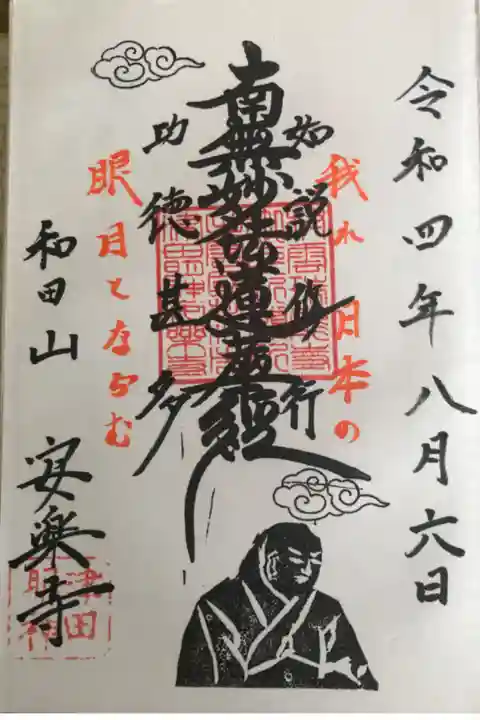 令和四年八月六日
我れ日本の
如説修行
南無妙法蓮華経
功徳甚多
眼目とならむ
和田山 安楽寺